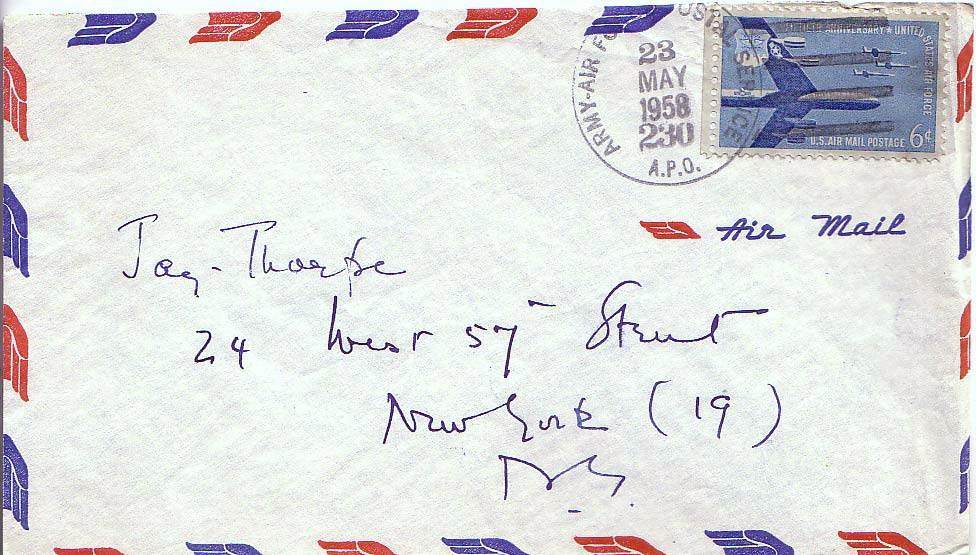 ARMY-AIR FO POSTAL SERVICE
23
MAY
1958
230
A.P.O.
ANNIVERSARY ★ UNITED STATES AIR FORCE
U.S. AIR MAIL POSTAGE 6¢
Air Mail
Jay-Thorpe
24 West 57 Street
New York (19)
N.Y.